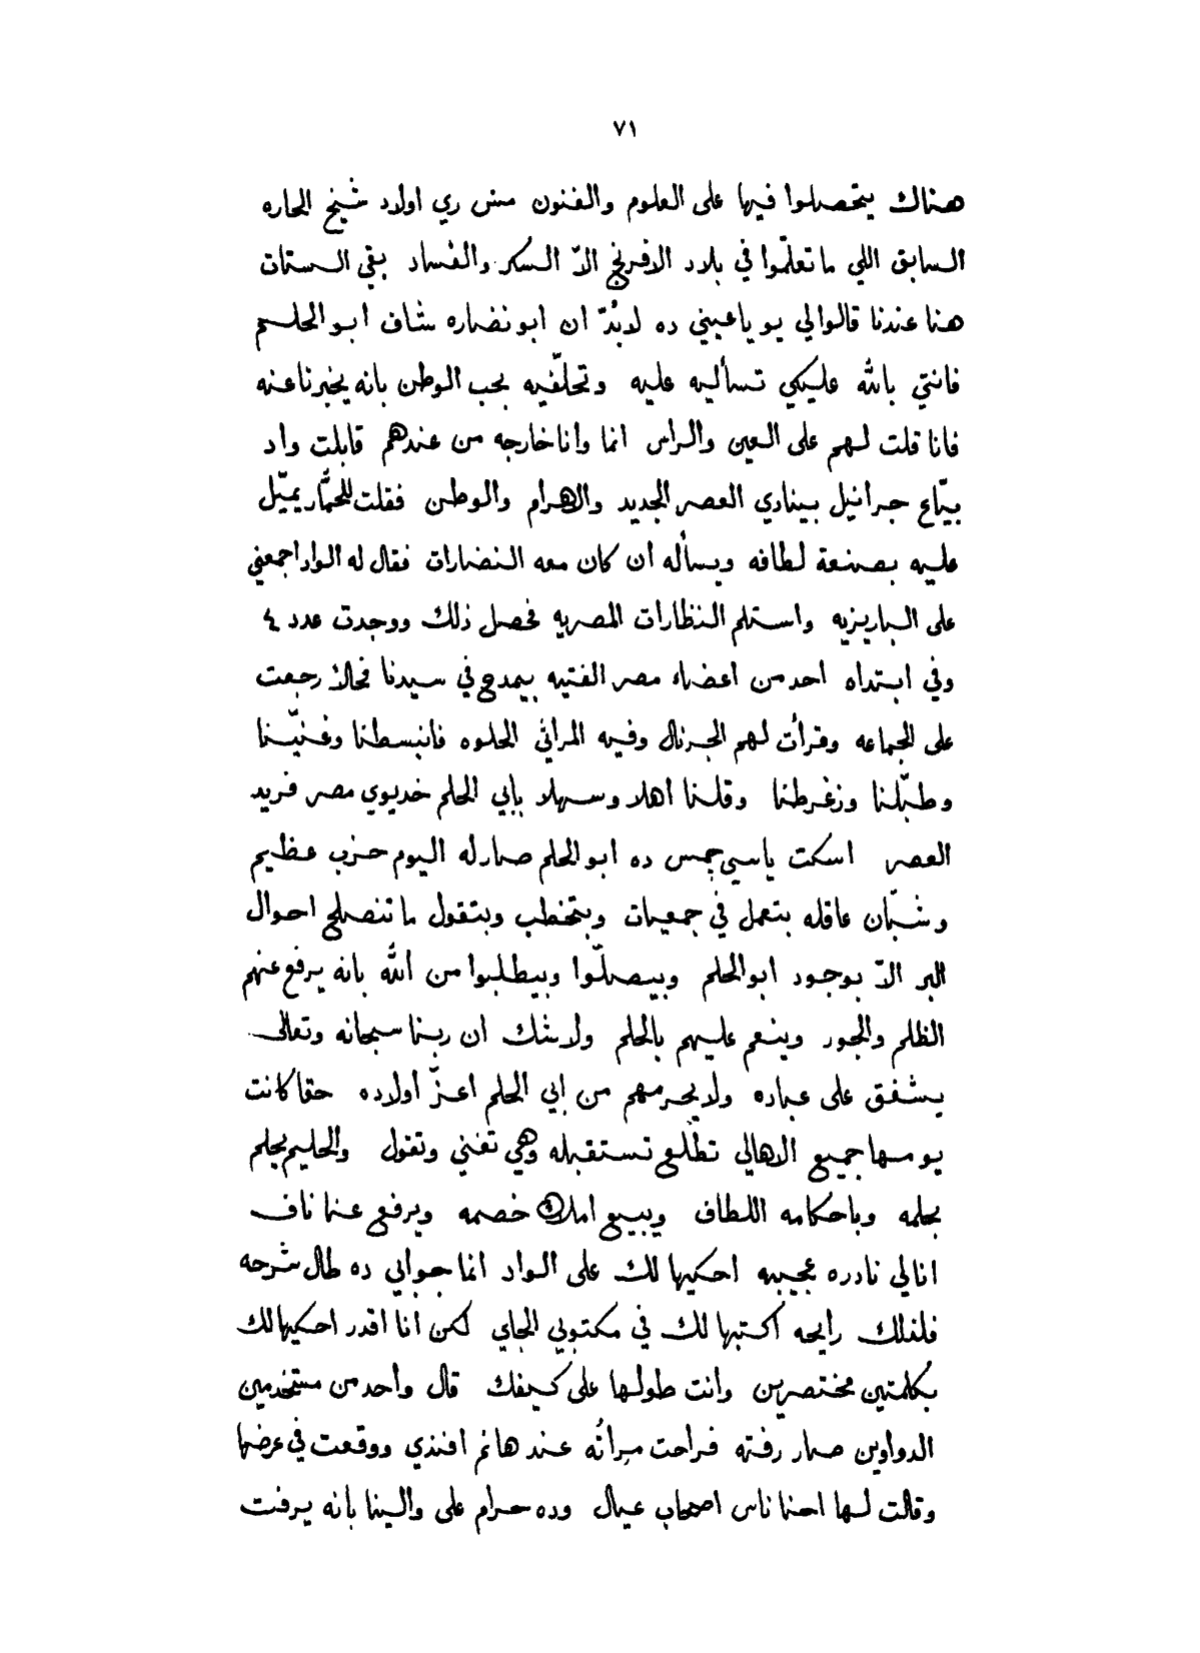 ٧١
هناك يتحصلوا فيها على العلوم والفنون مش زي اولاد شيخ الحاره
السابق اللي ما تعلّموا في بلاد الافرنج الاّ السكر والفساد بقى الستات
هنا عندنا قالوا لي يو يا عيني ده لابُدّ ان ابو نضاره شاف ابو الحلم
فانتي بالله عليكي تسأليه عليه وتحلّفيه بحب الوطن بانه يخبرنا عنه
فانا قلت لهم على العين والراس انما وانا خارجه من عندهم قابلت واد
بيّاع جرانيل بينادي العصر الجديد والاهرام والوطن فقلت للحمّار يميّل
عليه بصنعة لطافه ويسأله ان كان معه النضارات فقال له الواد اجمعني
على الباريزيه واستلم النظارات المصريه فحصل ذلك ووجدت عدد ٤
وفي ابتداه احد من اعضاء مصر الفتيه بيمدح في سيدنا فحالا رجعت
على الجماعه وقرأت لهم الجرنال وفيه المراثي الحلوه فانبسطنا وغنّينا
وطبّلنا وزغرطنا وقلنا اهلا وسهلا بابي الحلم خديوي مصر فريد
العصر اسكت ياسي جمس ده ابو الحلم صار له اليوم حزب عظيم
وشبّان عاقله بتعمل في جمعيات وبتخطب وبتقول ما تنصلح احوال
البر الاّ بوجود ابو الحلم وبيصلّوا وبيطلبوا من الله بانه يرفع عنهم
الظلم والجور وينعم عليهم بالحلم ولا شك ان ربنا سبحانه وتعالى
يشفق على عباده ولا يحرمهم من ابي الحلم اعزّ أولاده حقا كانت
يومها جميع الاهالي تطلع تستقبله وهي تغني وتقول والحليم بحلم
بحلمه وباحكامه اللطاف ويبيع املاك خصمه ويرفع عنا ناف
انا لي نادره عجيبه احكيها لك على الواد انما جوابي ده طال شرحه
فلذلك رايحه اكتبها لك في مكتوبي الجاي لكن انا اقدر احكيها لك
بكلمتين مختصرين وانت طولها على كيفك قال واحد من مستخدمين
الدواوين صار رفته فراحت مراته عند هانم افندي ووقعت في عرضها
وقالت لها احنا ناس اصحاب عيال وده حرام على والينا بانه يرفت